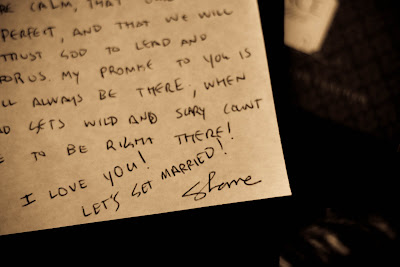 RE CALM, THAT
PERFECT, AND THAT WE WILL
TRUST GOD TO LEAD AND
FOR US. MY PROMISE TO YOU IS
LL ALWAYS BE THERE, WHEN
LETS WILD AND SCARY COUNT
E TO BE RIGHT THERE!
I LOVE YOU!
LET'S GET MARRIED!
Shane